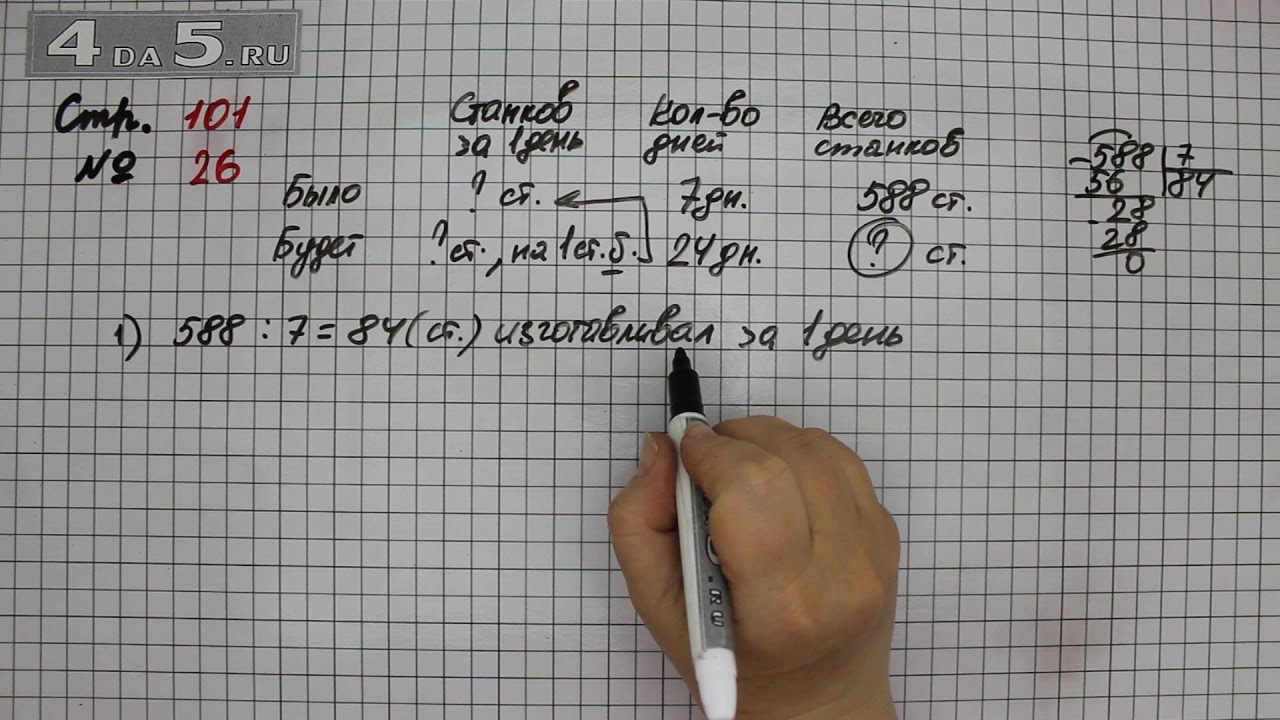 4 DA 5.RU
Стр. 101
№ 26
Станков за 1 день Кол-во дней Всего станков
Было ? ст. 7 дн. 588 ст.
Будет ? ст., на 1 ст. б. 24 дн. ? ст.
1) 588 : 7 = 84 (ст.) изготавливал за 1 день
- 588 7
56 84
- 28
28
0
.RU